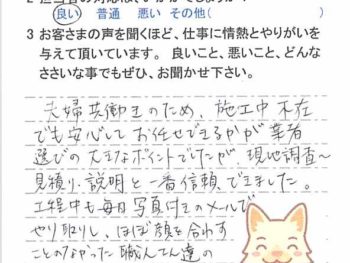 2 担当者の対応は、いかがでしたか？
良い 普通 悪い その他(
3 お客さまの声を聞くほど、仕事に情熱とやりがいを
与えて頂いています。 良いこと、悪いこと、どんな
ささいな事でもぜひ、お聞かせ下さい。
夫婦共働きのため、施工中不在
でも安心してお任せできるかが業者
選びの大きなポイントでしたが、現地調査〜
見積り・説明と一番信頼できました。
工程中も毎日写真付きのメールで
やり取りし、ほぼ顔を合わす
ことのなかった職人さん達の